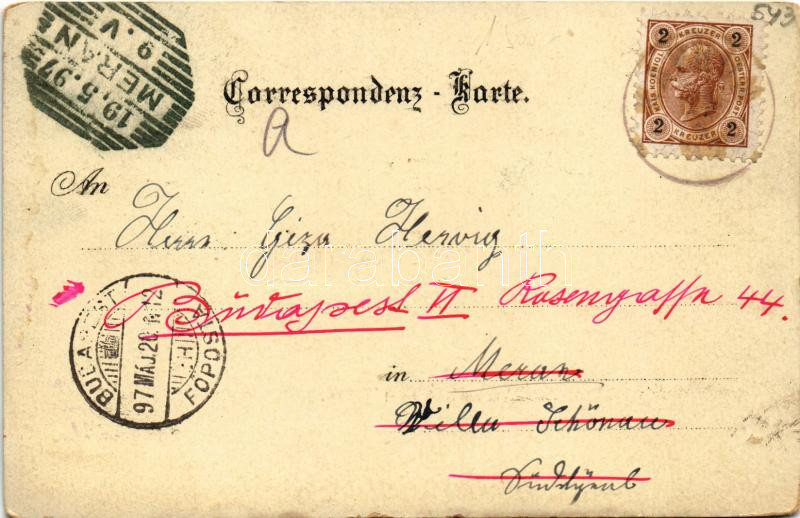 543
19.5.97
MERAN
9.V
2 KREUZER 2
2 KREUZER 2
Correspondenz-Karte.
a
An
Herrn Géza Hervig
darabanth
Budapest II Rosengasse 44.
BUDAPEST
97 MÁJ. 20
FŐPOSTA
in Meran
Villa Schönau
Südtyrol